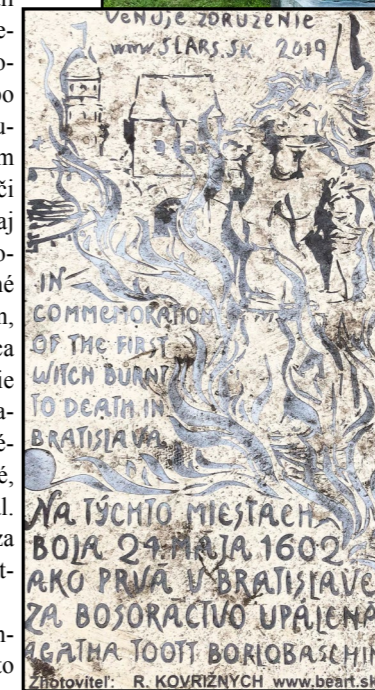 e-
o-
po
u-
m
či
aj
o-
né
h,
ca
ie
a-
é-
é,
al.
za
t-
n-
to
VENUJE ZDRUŽENIE
www.SLARS.SK 2019
IN
COMMEMORATION
OF THE FIRST
WITCH BURNT
TO DEATH IN
BRATISLAVA
NA TÝCHTO MIESTACH
BOLA 24 MÁJA 1602
AKO PRVÁ V BRATISLAVE
ZA BOSORÁCTVO UPÁLENÁ
AGATHA TOOTT BORLOBASCHIN
Zhotoviteľ: R. KOVRIŽNYCH www.beart.sk